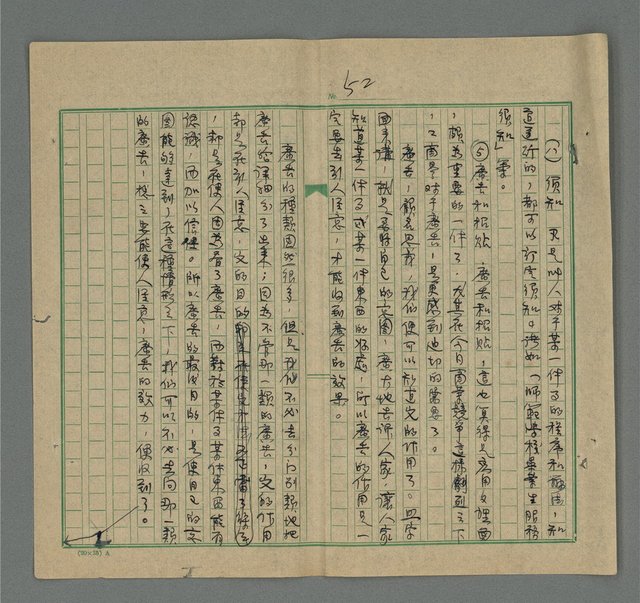 52
No.
(3) 須知 只是叫人对于某一件事的程序和施法,知
道遵行的,都可以訂定須知。譬如「師範學校畢業生服務
須知」等。
⑤廣告和招貼 廣告和招貼,這也真得是應用文裡面
,頗為重要的一件了,尤其在今日商業競爭這樣劇烈之下
,工商界对于廣告,是更感到迫切的需要了。
廣告,顧名思意,我们便可以知道它的作用了。四字
面來講,就是要將自己的意圖,廣大地告訴人家,讓人家
知道某一件事或某一件東西的好處,所以廣告的作用是一
定要告引人注意,才能收到廣告的效果。
廣告的種類固然很多,但是我们不必去分门别類地把
廣告給詳細分了出來;因為不管那一類的廣告,它的作用
都是在引人注意,它的目的
,都是在使人因為看了廣告,而對於某件事某件東西能有
認識,而加以信便。所以廣告的最後目的,是使自己的意
圖能夠達到,在這種情形之下,我们可以不必去问那一類
的廣告,栘之要能使人注意,廣告的效力,便收到了。
(20×25) A